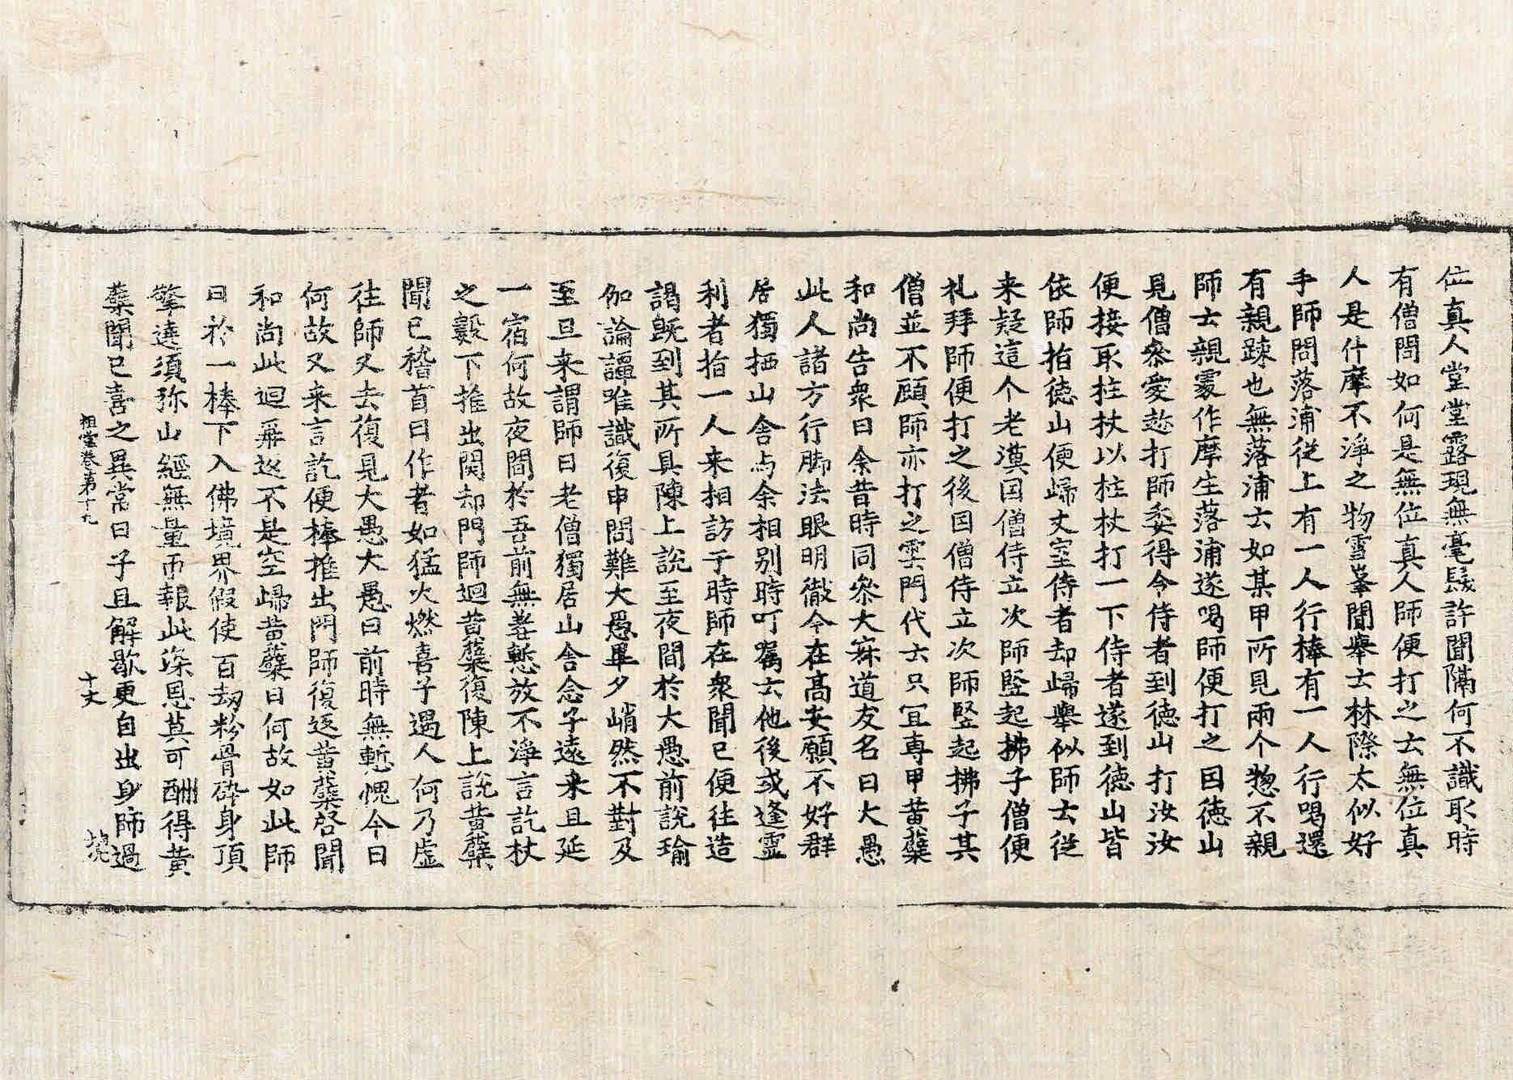 位真人堂堂露現無毫髮許間隔何不識取時
有僧問如何是無位真人師便打之云無位真
人是什摩不淨之物雪峯聞舉云林際太似好
手師問落浦從上有一人行棒有一人行喝還
有親踈也無落浦云如某甲所見兩个惣不親
師云親處作摩生落浦遂喝師便打之因德山
見僧叅愛趂打師委得令侍者到德山打汝汝
便接取柱杖以柱杖打一下侍者遂到德山皆
依師指德山便歸丈室侍者却歸舉似師云從
来疑這个老漢因僧侍立次師竪起拂子僧便
礼拜師便打之後因僧侍立次師竪起拂子其
僧並不顧師亦打之雲門代云只宜專甲黃蘗
和尚告衆曰余昔時同叅大寐道友名曰大愚
此人諸方行脚法眼明徹今在高安願不好群
居獨栖山舎与余相别時叮囑云他後或逢靈
利者指一人来相訪于時師在衆聞已便往造
謁旣到其所具陳上說至夜間於大愚前說瑜
伽論譚唯識復申問難大愚畢夕峭然不對及
至旦来謂師曰老僧獨居山舎念子遠来且延
一宿何故夜間於吾前無羞慙放不淨言訖杖
之數下推出関却門師迴黃蘗復陳上說黃蘗
聞已稽首曰作者如猛火燃喜子遇人何乃虛
往師又去復見大愚大愚曰前時無慙愧今日
何故又来言訖便棒推出門師復返黃蘗啓聞
和尚此迴再返不是空歸黃蘗曰何故如此師
曰於一棒下入佛境界假使百劫粉骨碎身頂
擎遶須弥山經無量帀報此深恩莫可酬得黃
蘗聞已喜之異常曰子且解歇更自出身師過
祖堂卷第十九 十丈